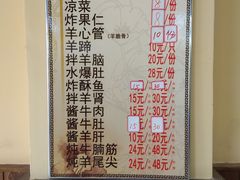 凉菜 8/份
炸果仁 8/份
羊心管(羊脆骨) 10 44
羊蹄 10元/只
拌羊脑 20元/份
水爆肚 28元/份
炸酥鱼 15元/30元/份
拌羊肾 15元/30元/份
酱牛肉 15元/30元/份
酱牛肚 15元/30元/份
酱羊肝 15元/30元/份
炖牛腩筋 24元/48元/份
炖羊尾尖 24元/48元/份